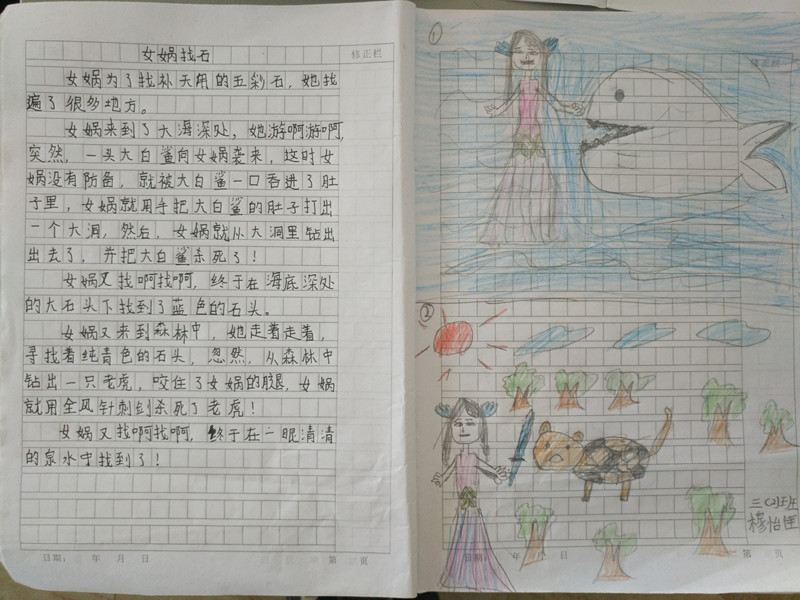 女娲找石
修正栏
女娲为了找补天用的五彩石，她找
遍了很多地方。
女娲来到了大海深处，她游啊游啊，
突然，一头大白鲨向女娲袭来，这时女
娲没有防备，就被大白鲨一口吞进了肚
子里，女娲就用手把大白鲨的肚子打出
一个大洞，然后，女娲就从大洞里钻出
出去了，并把大白鲨杀死了！
女娲又找啊找啊，终于在海底深处
的大石头下找到了蓝色的石头。
女娲又来到森林中，她走着走着，
寻找着纯青色的石头，忽然，从森林中
钻出一只老虎，咬住了女娲的腿，女娲
就用全风针刺剑杀死了老虎！
女娲又找啊找啊，终于在一眼清清
的泉水中找到了！
日期： 年 月 日 第 页
①
修正栏
②
三（2）班
穆怡佳
日期： 年 月 日 第 页